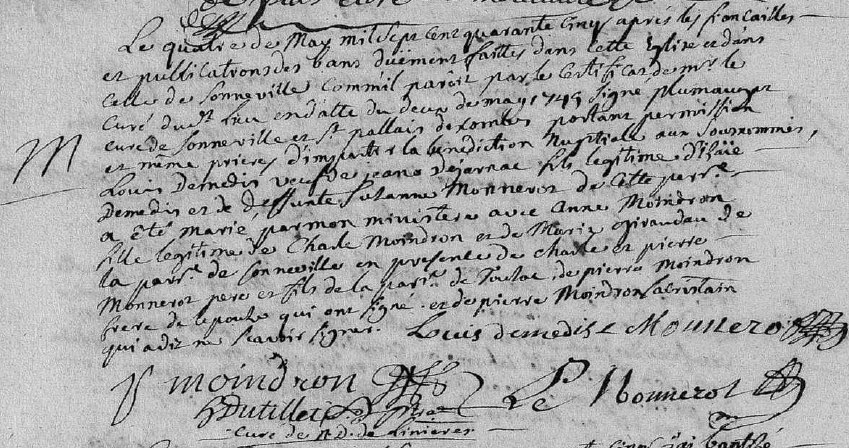 Le quatre de May mil sept cent quarante cinq après les fiançailles
et publications des bans duëment faites dans cette Eglise et dans
celle de Sonneville comm il paroit par le certificat de mr. le
curé du st lieu en datte du deux de may 1745 signé plumauget
curé de Sonneville et st pallais portant permission
et même prieres d'impartir la benediction Nuptiale aux sousnommés,
M
Louis Demedis veuf de jeane Dejarnac fils legitime d'
Demedis et de deffunte Suzanne Monnerot de cette parr.e
a été marié par mon ministere avec anne Moindron
fille legitime de Charle Moindron et de Marie Giraudau de
la parr.e de Sonneville en presence de charle et pierre
Monnerot pere et fils de la parr.e de de pierre Moindron
frere de l epouse qui ont signé. et de pierre Moindron sacristain
qui a dit ne scavoir signer.
Louis demedis
C Monnerot
P moindron
P Monnerot
Dutillet
curé de N.D. de Linieres